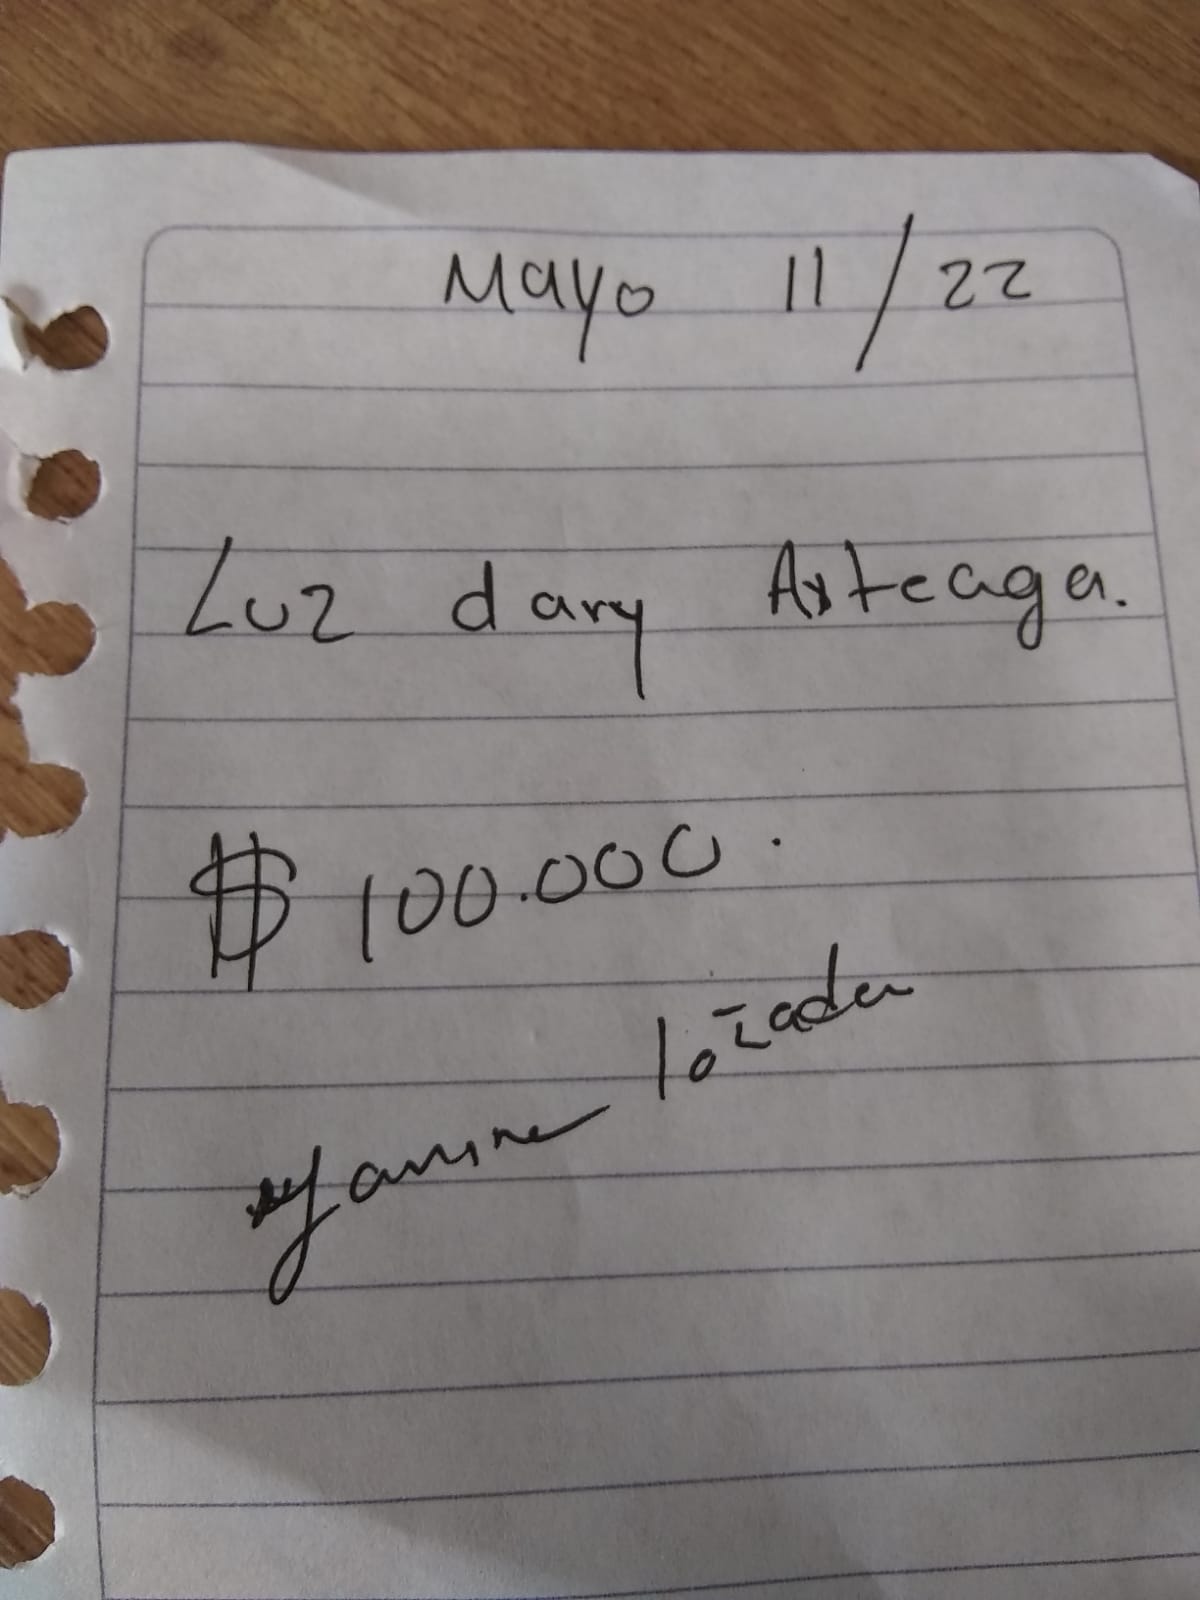 Mayo 11/22
Luz dary Arteaga.
$ 100.000.
yamine lozada